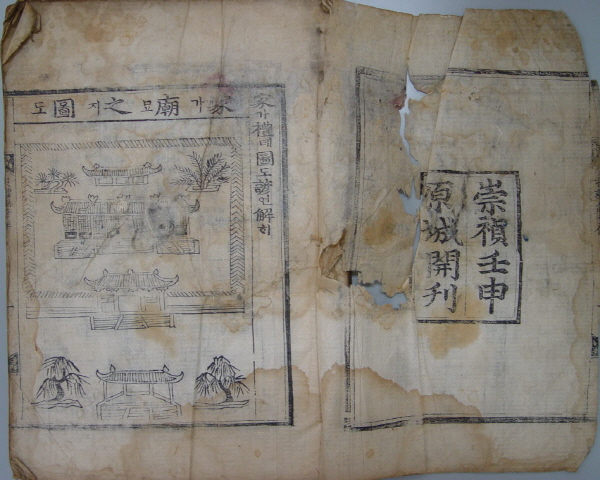 崇禎壬申
原城開刊
家가禮례圖도諺언解ᄒᆡ
家가廟묘之지圖도